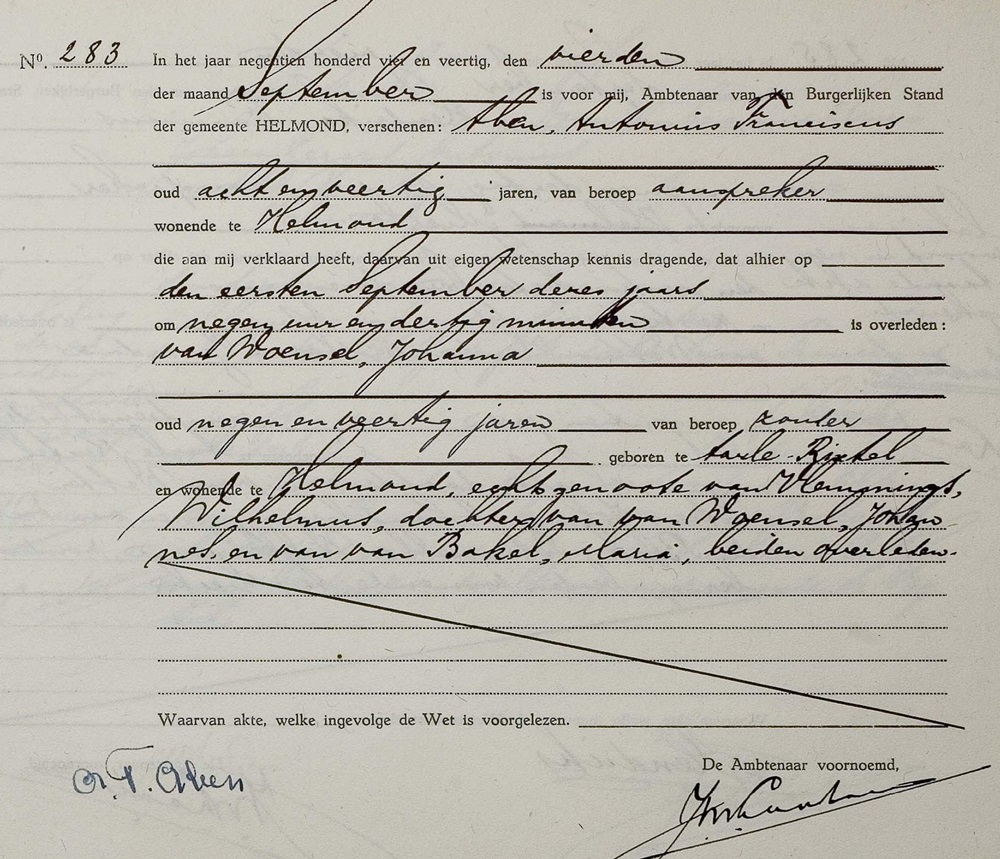 Nº. 283 In het jaar negentien honderd vier en veertig, den vierden
der maand September is voor mij, Ambtenaar van den Burgerlijken Stand
der gemeente HELMOND, verschenen: Aben, Antonius Franciscus
oud acht en veertig jaren, van beroep aanspreker
wonende te Helmond
die aan mij verklaard heeft, daarvan uit eigen wetenschap kennis dragende, dat alhier op
den eersten September dezes jaars
om negen uur en dertig minuten is overleden:
van Woensel, Johanna
oud negen en veertig jaren van beroep zonder
geboren te Aarle-Rixtel
en wonende te Helmond, echtgenoote van Vlemmings,
Wilhelmus, dochter van van Woensel, Johan
nes, en van van Bakel, Maria, beiden overleden.
Waarvan akte, welke ingevolge de Wet is voorgelezen.
De Ambtenaar voornoemd,
A.F. Aben